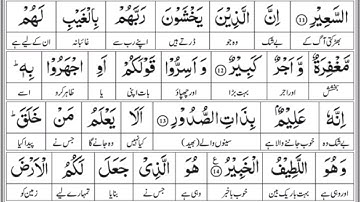 السَّعِيْرِ ﴿11﴾ اِنَّ الَّذِيْنَ يَخْشَوْنَ رَبَّهُمْ بِالْغَيْبِ لَهُمْ
بھڑکتی آگ کے بے شک وہ جو ڈرتے ہیں اپنے رب سے غائبانہ ان کے لیے ہے
مَّغْفِرَةٌ وَّاَجْرٌ كَبِيْرٌ ﴿12﴾ وَاَسِرُّوْا قَوْلَكُمْ اَوِ اجْهَرُوْا بِهٖ
بخشش اور اجر بہت بڑا اور چھپاؤ بات اپنی یا ظاہر کرو اسے
اِنَّهٗ عَلِيْمٌۢ بِذَاتِ الصُّدُوْرِ ﴿13﴾ اَلَا يَعْلَمُ مَنْ خَلَقَ
بے شک وہ خوب جاننے والا ہے سینوں والے (بھید) کیا نہیں وہ جانے گا جس نے پیدا کیا
وَهُوَ اللَّطِيْفُ الْخَبِيْرُ ﴿14﴾ هُوَ الَّذِيْ جَعَلَ لَكُمُ الْاَرْضَ
اور وہی ہے بہت باریک بین خوب باخبر وہی ہے جس نے بنایا تمہارے لیے زمین کو